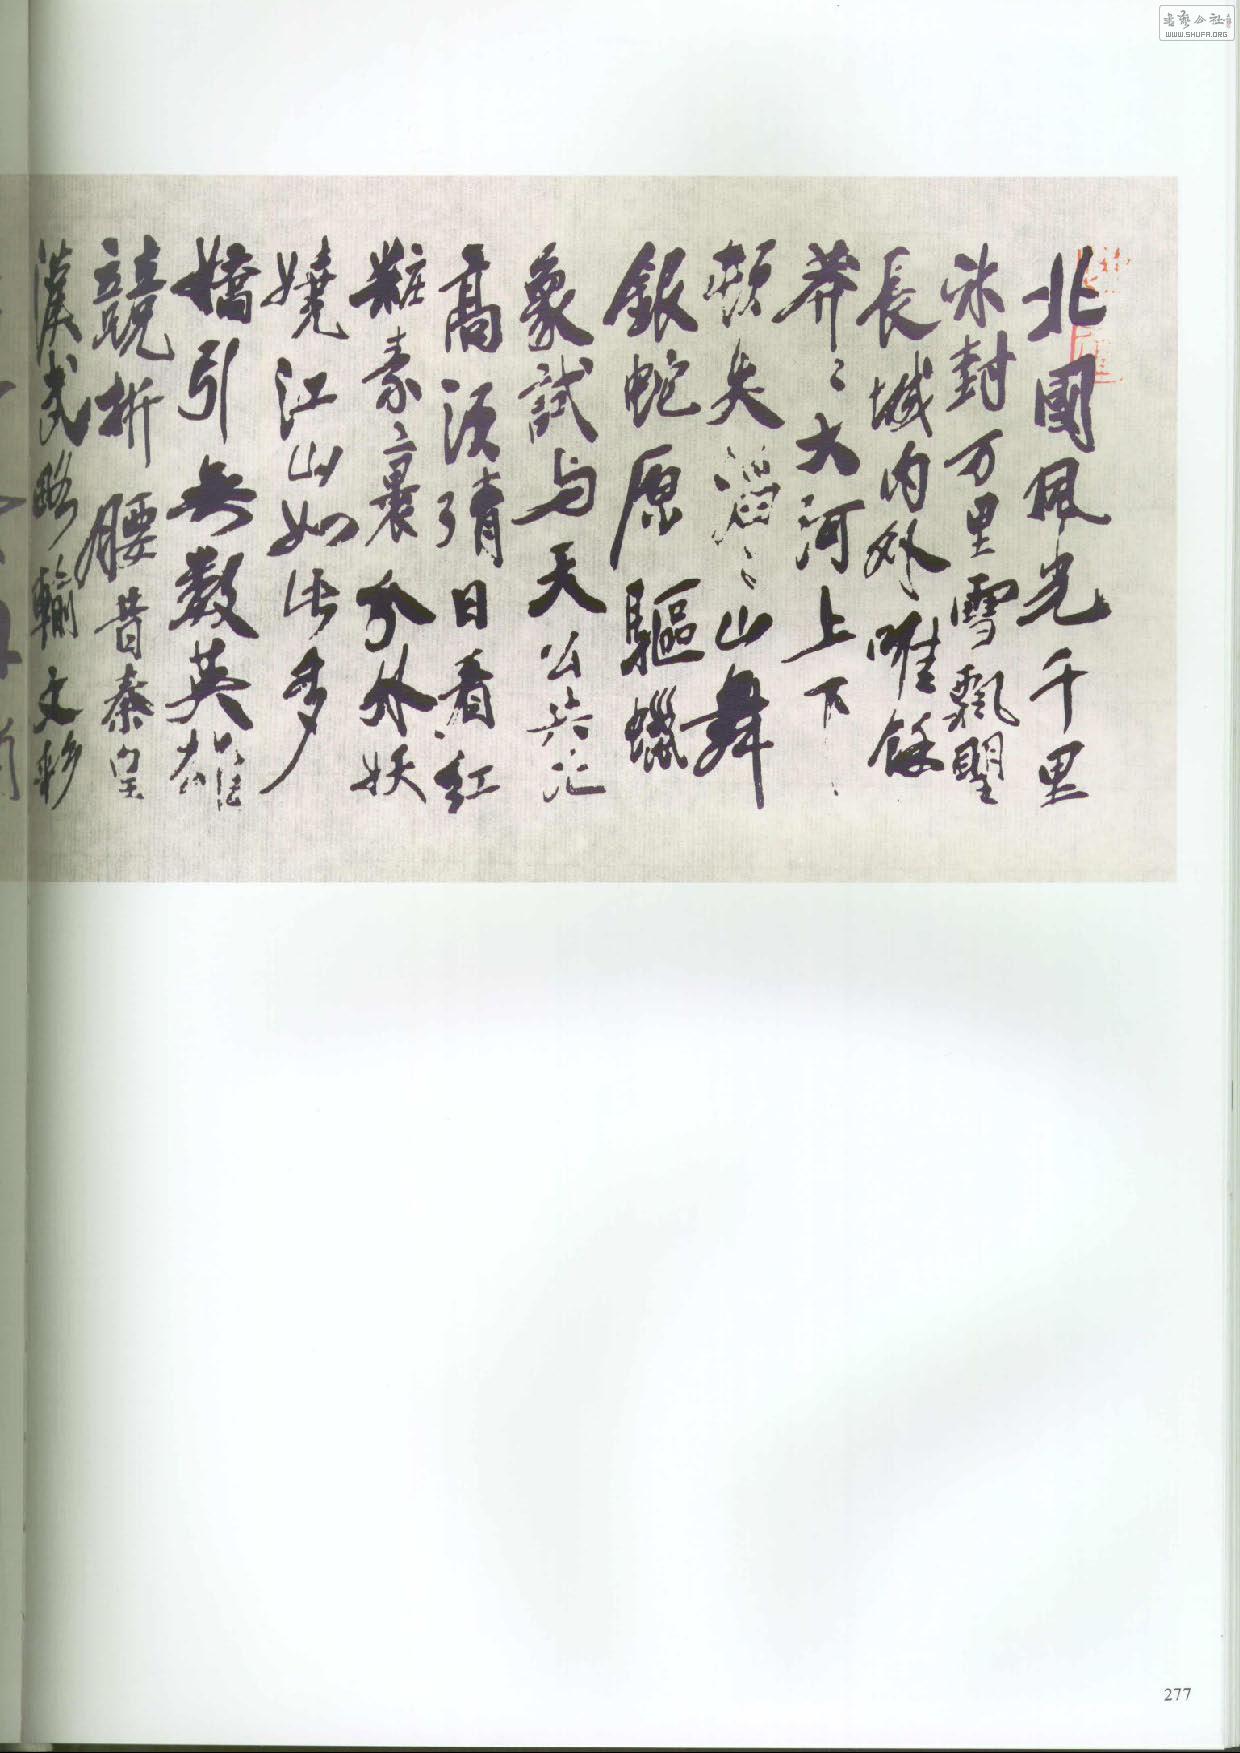 北國風光千里
冰封万里雪飄望
長城内外唯餘
莽〻大河上下
頓失滔〻山舞
銀蛇原驅蠟
象試与天公共比
高須晴日看紅
粧素裹分外妖
嬈江山如此多
嬌引無數英雄
競折腰昔秦皇
漢武略輸文彩
277
书艺公社
WWW.SHUFA.ORG